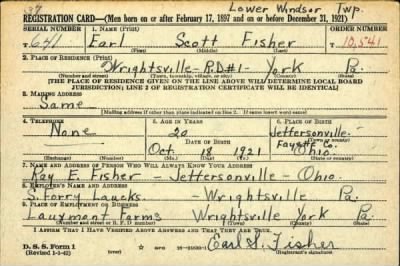 37 Lower Windsor Twp.
REGISTRATION CARD—(Men born on or after February 17, 1897 and on or before December 31, 1921)
SERIAL NUMBER 1. NAME (Print) ORDER NUMBER
T 641 Earl Scott Fisher 10,541
(First) (Middle) (Last)
2. PLACE OF RESIDENCE (Print)
Wrightsville - RD#1 - York Pa.
(Number and street) (Town, township, village, or city) (County) (State)
[THE PLACE OF RESIDENCE GIVEN ON THE LINE ABOVE WILL DETERMINE LOCAL BOARD
JURISDICTION; LINE 2 OF REGISTRATION CERTIFICATE WILL BE IDENTICAL]
3. MAILING ADDRESS
Same
[Mailing address if other than place indicated on line 2. If same insert word same]
4. TELEPHONE 5. AGE IN YEARS 6. PLACE OF BIRTH
None 20 Jeffersonville-
DATE OF BIRTH Fayette Co.
(Town or county)
Oct. 18 1921 Ohio.
(Exchange) (Number) (Mo.) (Day) (Yr.) (State or country)
7. NAME AND ADDRESS OF PERSON WHO WILL ALWAYS KNOW YOUR ADDRESS
Ray E. Fisher - Jeffersonville - Ohio.
8. EMPLOYER'S NAME AND ADDRESS
S. Forry Laucks - Wrightsville Pa.
9. PLACE OF EMPLOYMENT OR BUSINESS
Lauxmont Farms Wrightsville York Pa.
(Number and street or R. F. D. number) (Town) (County) (State)
I AFFIRM THAT I HAVE VERIFIED ABOVE ANSWERS AND THAT THEY ARE TRUE.
D. S. S. Form 1
(Revised 1-1-42) (over) Earl S. Fisher
(Registrant's signature)